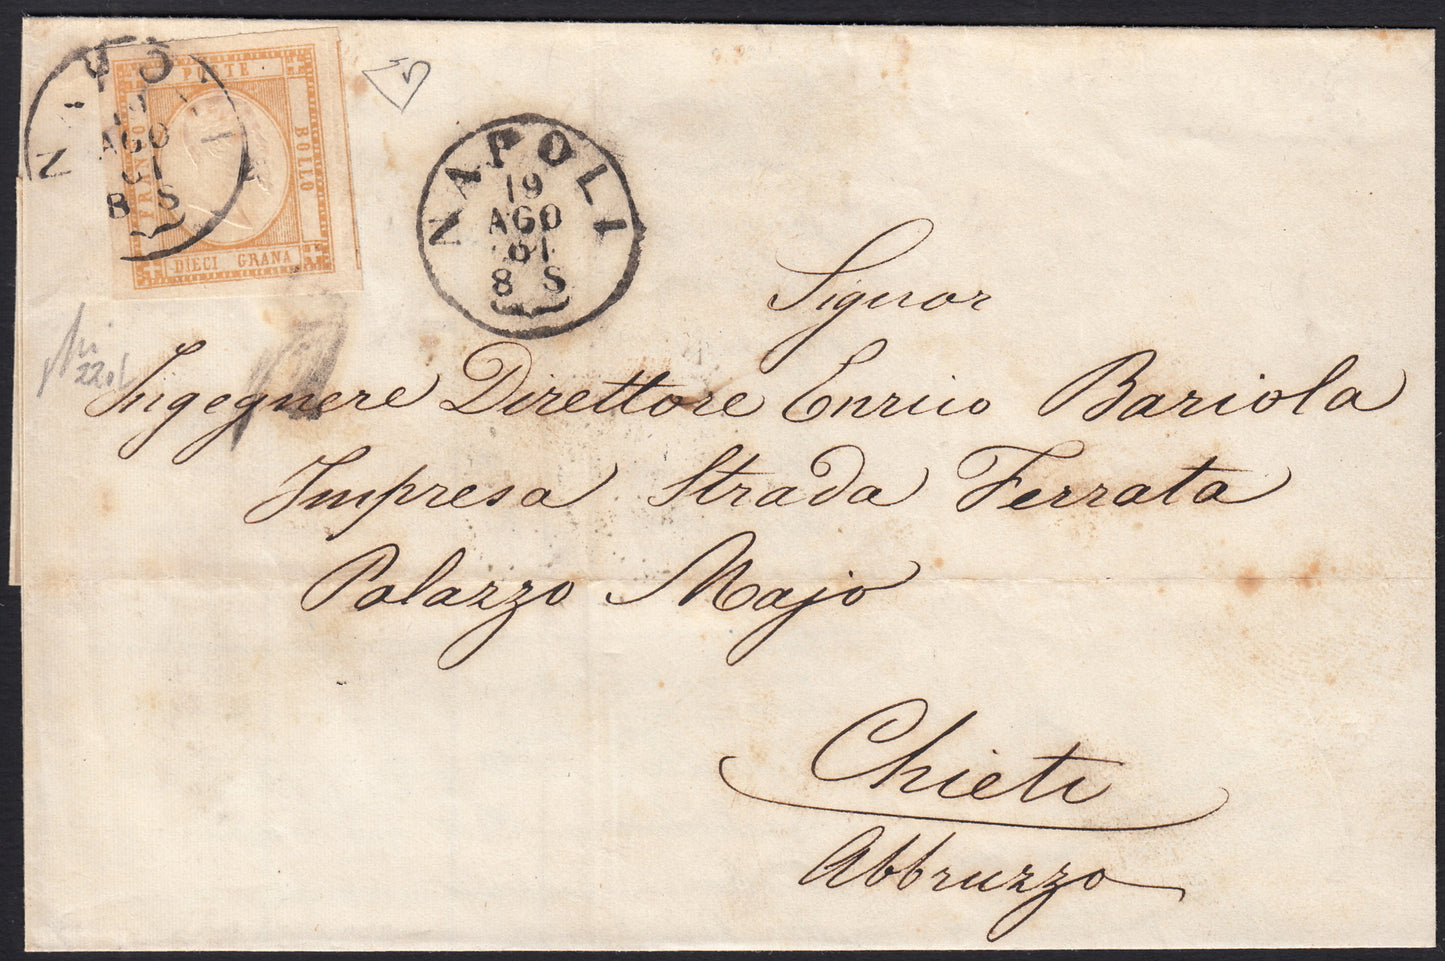 POSTE
FRANCO
BOLLO
DIECI GRANA
NAPOLI
19
AGO
61
8 S
NAPOLI
19
AGO
61
8 S
Signor
Ingegnere Direttore Enrico Bariola
Impresa Strada Ferrata
Palazzo Majo
Chieti
Abbruzzo